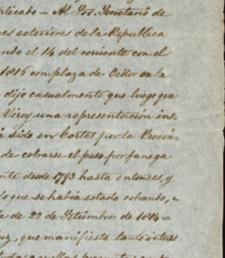 plicado = Al Sor. Secretario de
nes esteriores de la Republica
ando el 14 del corriente con el
1816 con plaza de Oidor en la
dijo casualmente que luego que
Virey una representacion ins
a sido en Cortes por la Provin
de cobrarse el peso por fanega
nte desde 1793 hasta entonces, y
lo que se habia estado cobrando, n
ia de 22 de Setiembre de 1814 =
uz, que manifiesta tanto inter